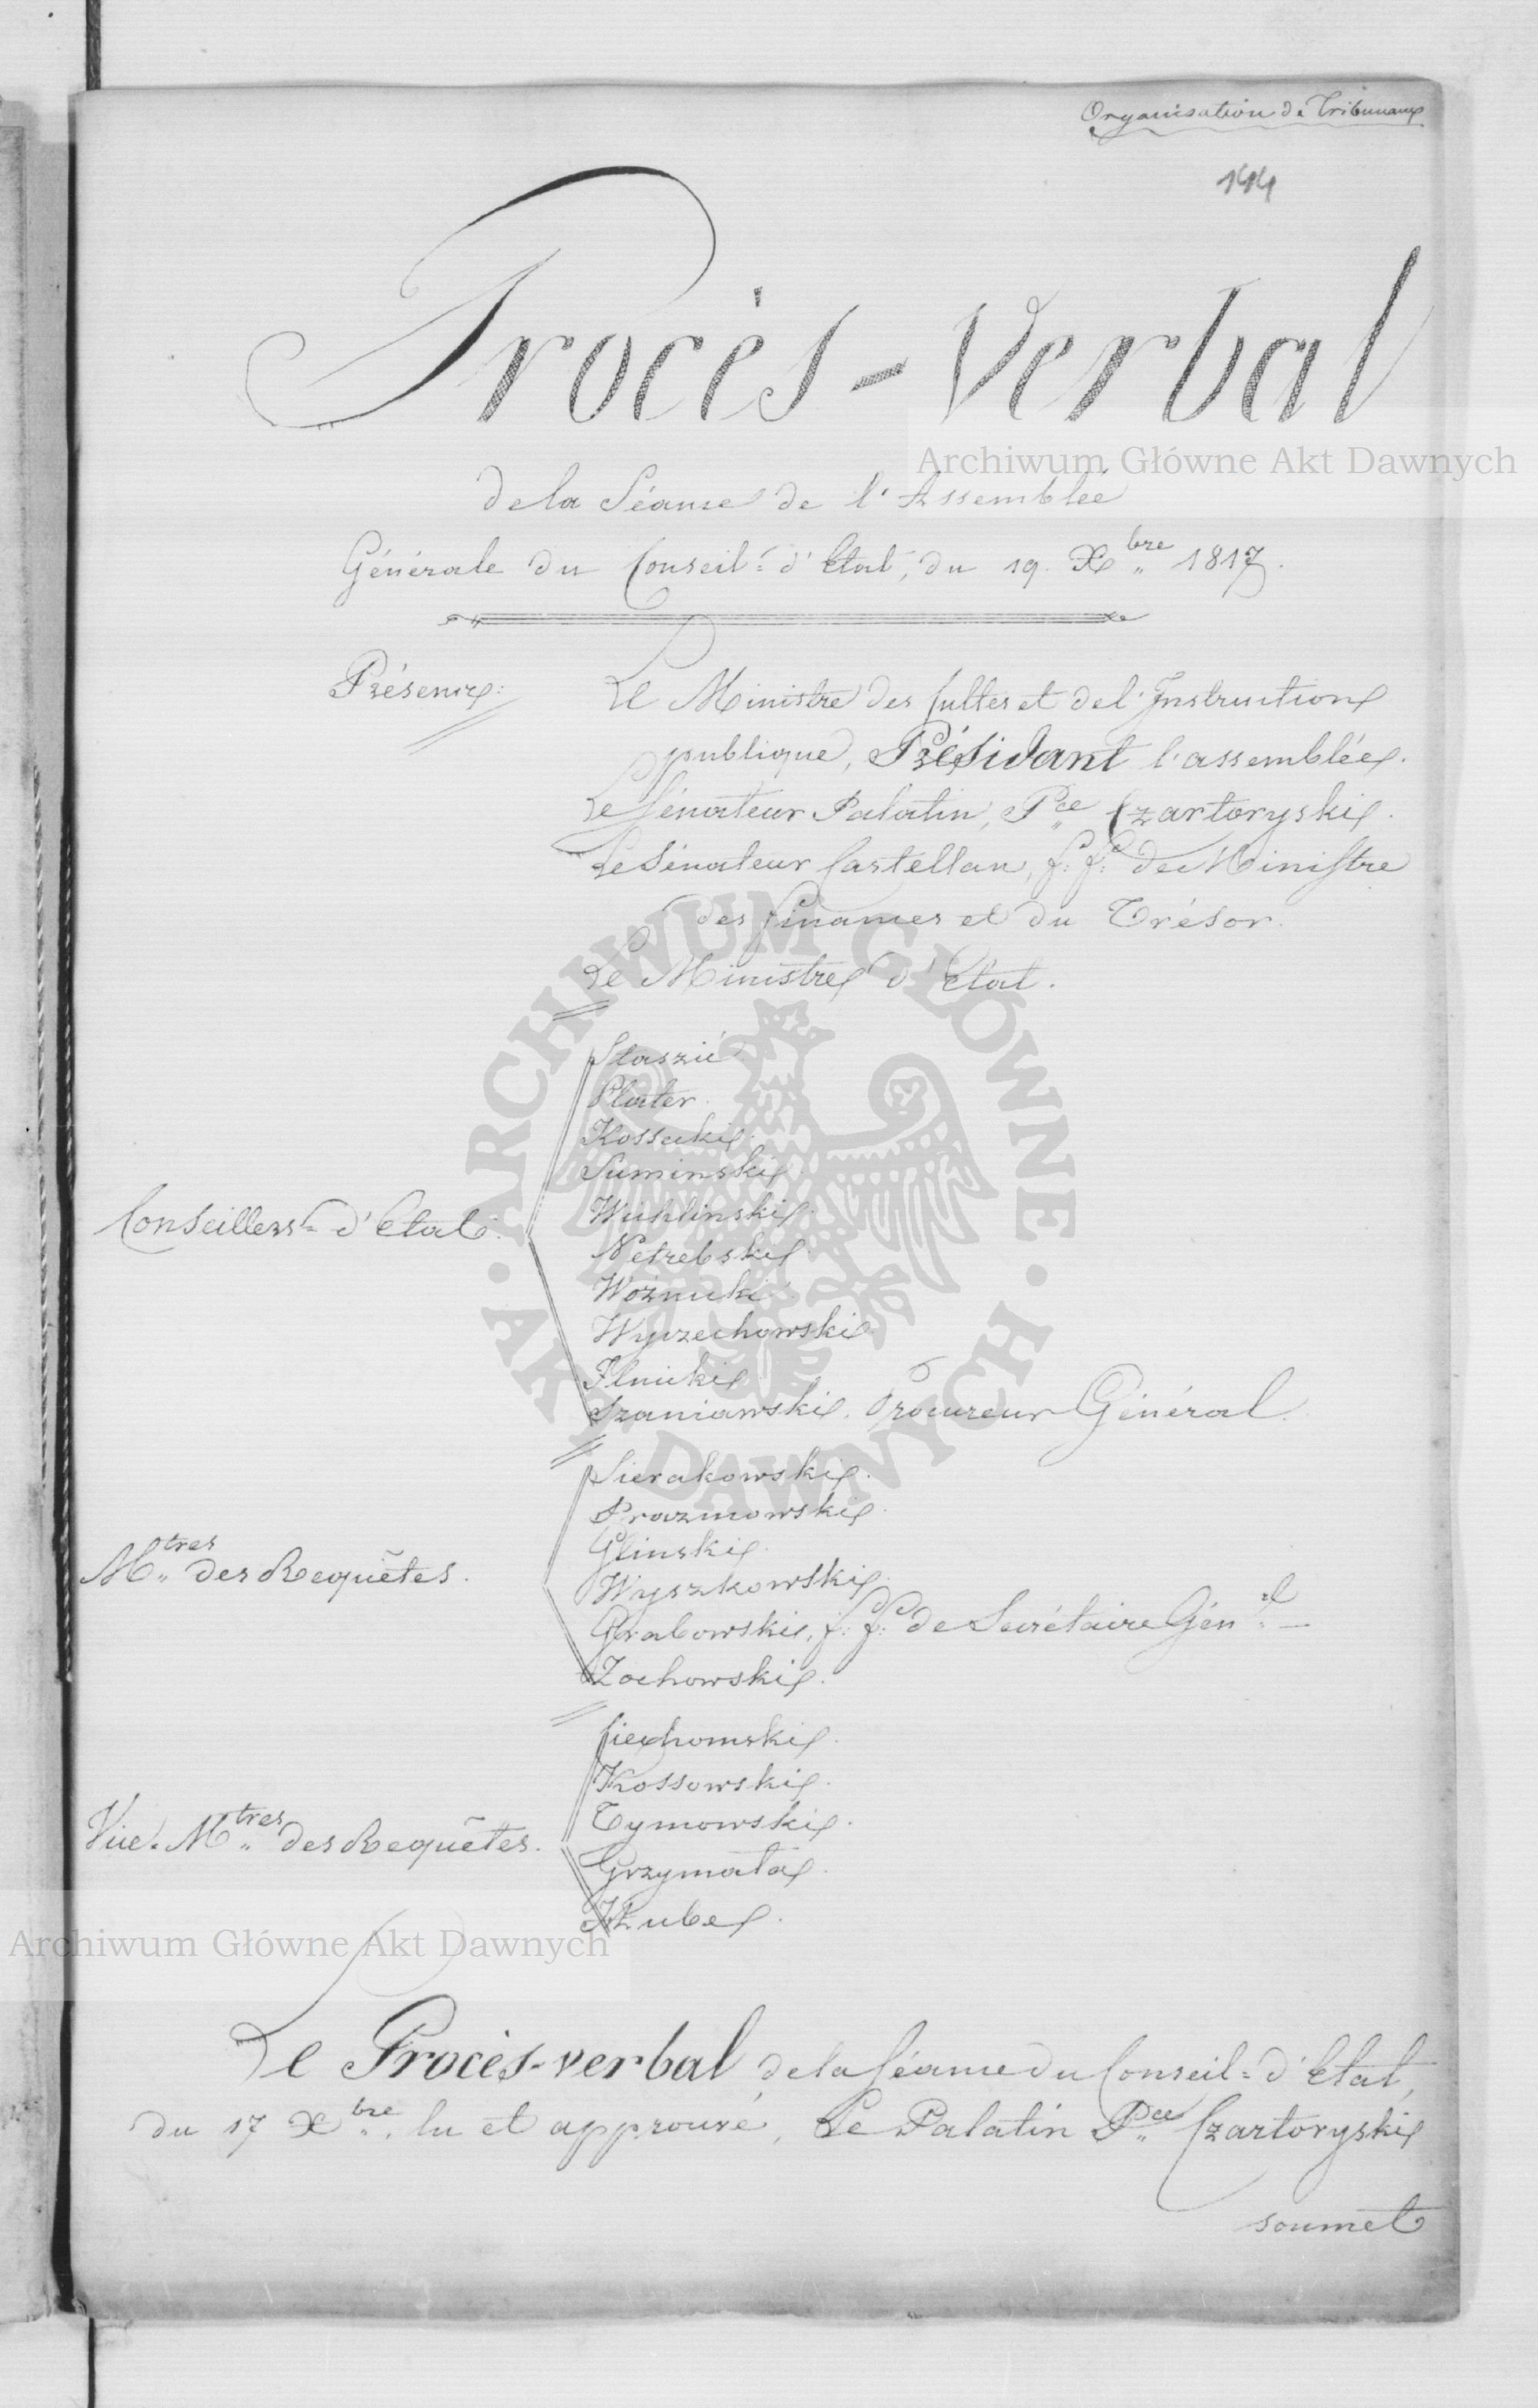 Organisation de Tribunaux
144
Procès-Verbal
Archiwum Główne Akt Dawnych
de la Séance de l'Assemblée
Générale du Conseil=d'Etat, du 19. Xbre 1817.
Présence:
Le Ministre des Cultes et de l'Instruction
publique, Présidant l'assemblée.
Le Sénateur Palatin, Pce Czartoryski.
Le Sénateur Castellan, f: f: de Ministre
des finances et du Trésor.
Le Ministre d'Etat.
ARCHIWUM GŁÓWNE AKT DAWNYCH
Conseillers=d'Etat.
Staszic
Plater.
Kossecki.
Suminski.
Wichlinski.
Netrebski.
Woźnicki.
Wyczechowski.
Ilnicki
Szaniawski. Procureur Général.
Mtres des Requêtes.
Sierakowski.
Prazmowski.
Glinski.
Wyszkowski.
Grabowski, f: f: de Secrétaire Génal
Zochowski.
Vice-Mtres des Requêtes.
Ciechomski.
Kossowski.
Tymowski.
Grzymała.
Kube.
Archiwum Główne Akt Dawnych
Le Procès-verbal de la Séance du Conseil=d'Etat,
du 17 Xbre, lu et approuvé, Le Palatin Pce Czartoryski
soumet